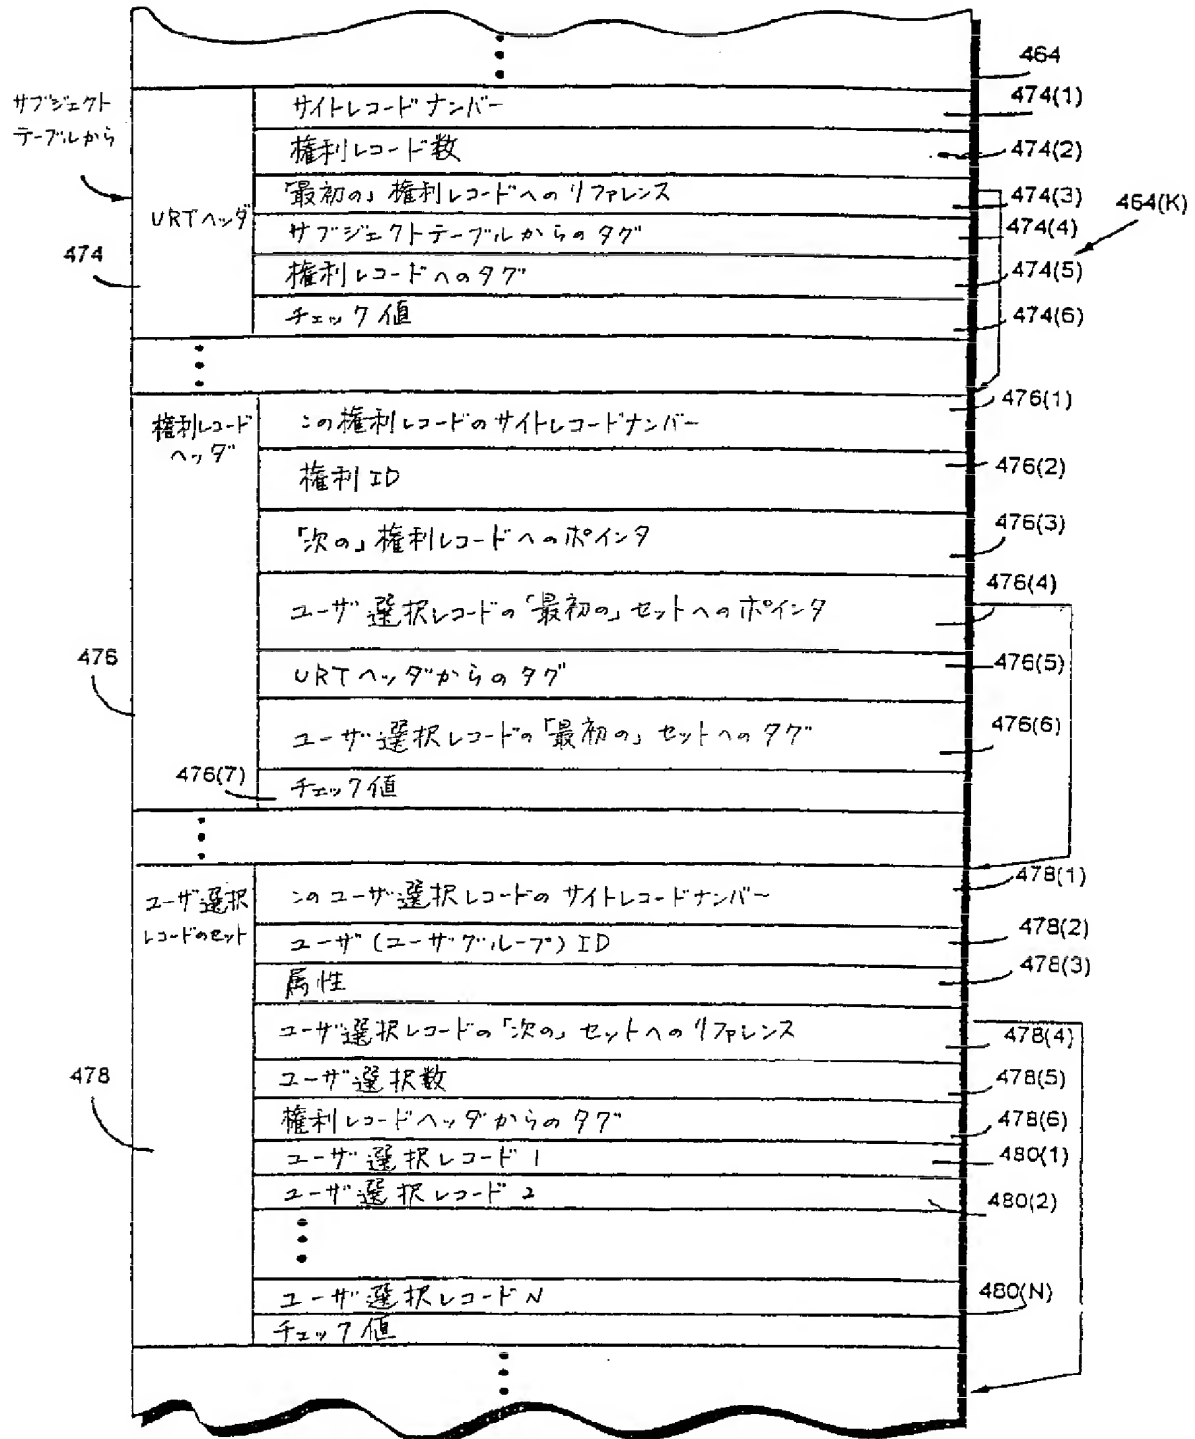 464
サブジェクト
テーブルから
サイトレコードナンバー
474(1)
権利レコード数
474(2)
「最初の」権利レコードへのリファレンス
474(3)
464(K)
URTヘッダ
サブジェクトテーブルからのタグ
474(4)
474
権利レコードへのタグ
474(5)
チェック値
474(6)
権利レコード
ヘッダ
この権利レコードのサイトレコードナンバー
476(1)
権利ID
476(2)
「次の」権利レコードへのポインタ
476(3)
ユーザ選択レコードの「最初の」セットへのポインタ
476(4)
476
URTヘッダからのタグ
476(5)
ユーザ選択レコードの「最初の」セットへのタグ
476(6)
476(7)
チェック値
ユーザ選択
レコードのセット
このユーザ選択レコードのサイトレコードナンバー
478(1)
ユーザ(ユーザグループ)ID
478(2)
属性
478(3)
ユーザ選択レコードの「次の」セットへのリファレンス
478(4)
478
ユーザ選択数
478(5)
権利レコードヘッダからのタグ
478(6)
ユーザ選択レコード1
480(1)
ユーザ選択レコード2
480(2)
ユーザ選択レコードN
480(N)
チェック値